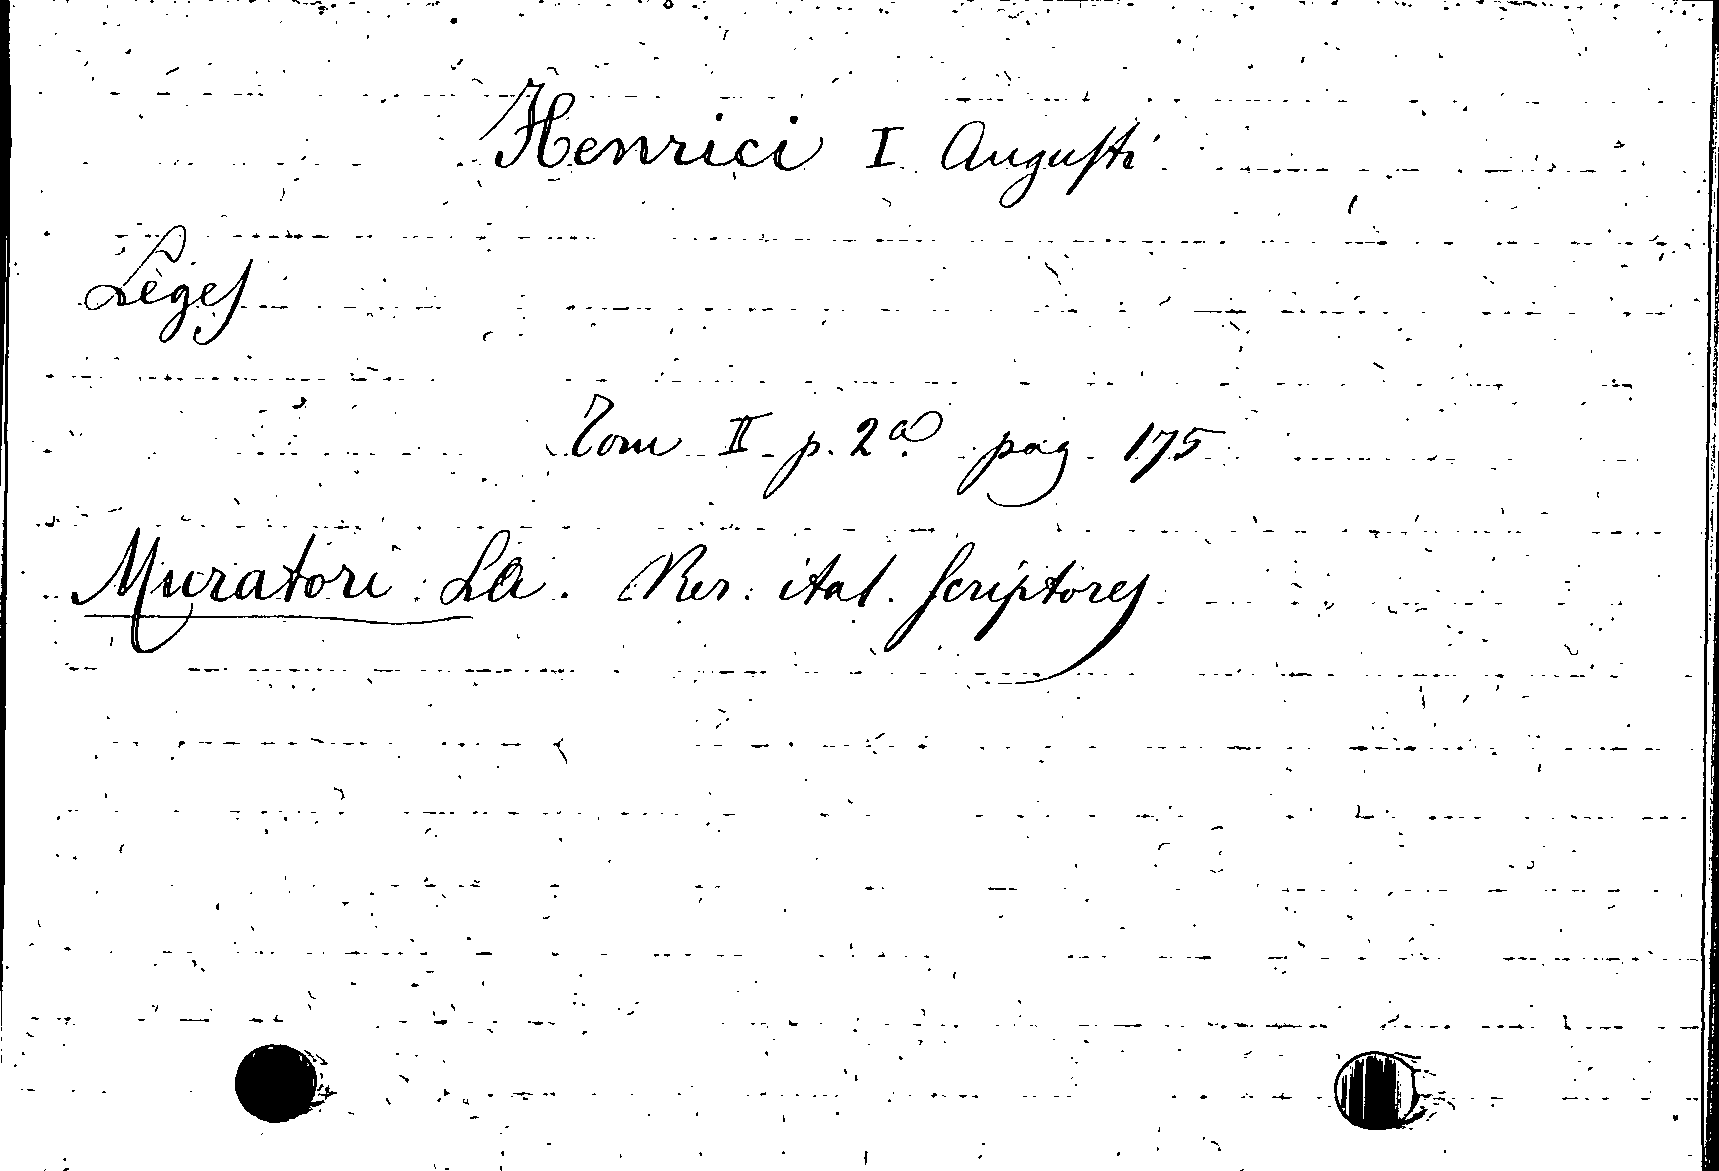 Henrici I Augusti
Leges
Tom II p. 2a pag 175
Muratori La. Rer. ital. Scriptores